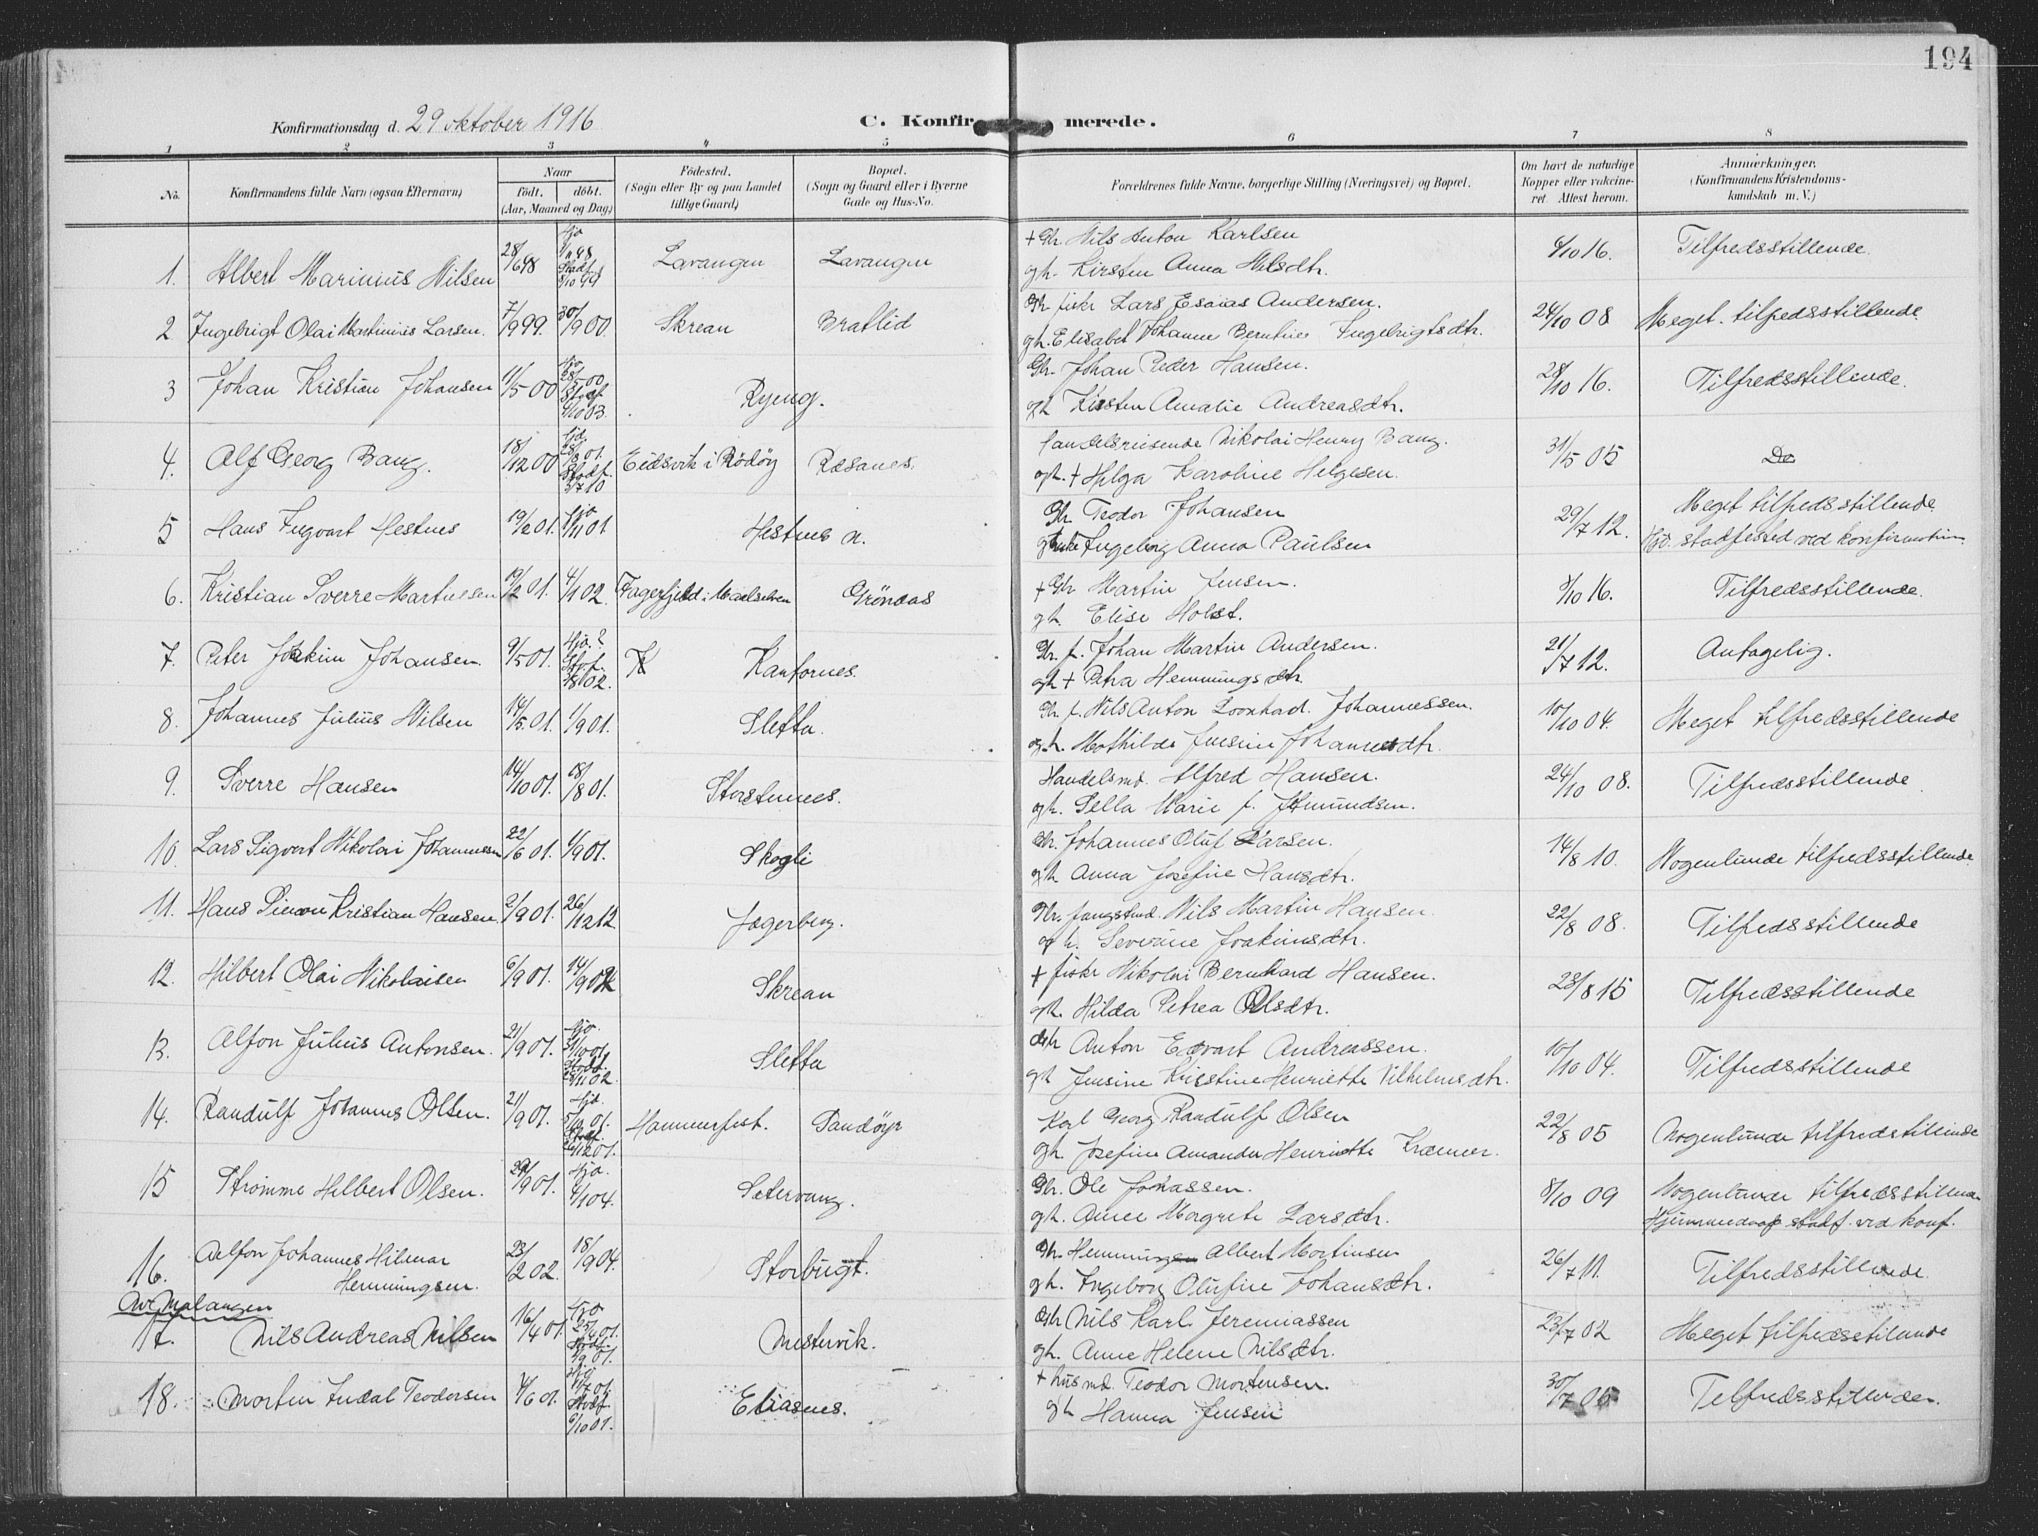 194
Konfirmationsdag d. 29 oktober 1916
C. Konfirmerede.
1 2 3 4 5 6 7 8
No.
Konfirmandens fulde Navn (ogsaa Efternavn)
Naar
födt. döbt.
(Aar, Maaned og Dag.)
Födested.
(Sogn eller By og paa Landet
tillige Gaard)
Bopæl.
(Sogn og Gaard eller i Byerne
Gade og Hus-No.
Forældrenes fulde Navne, borgerlige Stilling (Næringsvei) og Bopæl.
Om havt de naturlige
Kopper eller vakcine-
ret. Attest herom.
Anmærkninger.
(Konfirmandens Kristendoms-
kundskab m. V.)
1. Albert Marinius Nilsen 28/6 98 Lavangen Lavangen + Gbr. Nils Anton Karlsen 6/10 16. Tilfredsstillende.
og h. Kirsten Anna Nilsdtr.
2 Ingebrigt Olai Martinius Larsen. 7/9 99. 30/9 00. Skrean Bratlid Gbr. fiskr Lars Esaias Andersen. 24/10 08 Meget tilfredsstillende
gh. Elisabet Johanne Berntine Ingebrigtsdtr.
3 Johan Kristian Johansen 11/5 00 Ryeng. Gbr. Johan Peder Hansen. 28/10 16. Tilfredsstillende.
gh Kirsten Amalie Andreasdtr.
4. Alf Georg Bang. 18/12 00 Eidsvik i Rödöy Ræsanes. Handelsreisende Nikolai Henry Bang. 31/5 05 Do
og h. + Helga Karoline Helgesen.
5 Hans Ingvart Hestnes 19/2 01. Hestnes n. Gbr Teodor Johansen 29/7 12. Meget tilfredsstillende
Ingeborg Anna Paulsen
Hjd. stadfested ved konfirmation.
6. Kristian Sverre Martinsen 19/2 01. 4/1 02. Fagerfjeld i Maalselven Grönaas + Gbr Martin Jensen. 3/10 16. Tilfredsstillende.
gh. Elise Holst.
7. Peter Joakim Johansen. 9/5 01. Kantornes. Gbr. f. Johan Martin Andersen. 21/7 12. Antagelig.
gh + Petra Hemmingsdtr.
8. Johannes Julius Nilsen 14/5 01. 1/9 01. Sletta. Gbr f. Nils Anton Leonhard Johannessen. 10/10 04. Meget tilfredsstillende
og h. Mathilde Jensine Johannesdtr.
9. Sverre Hansen 14/10 01. 18/8 01. Storstennes. Handelsmd. Alfred Hansen. 24/10 08. Tilfredsstillende
gh. Sella Marie f. Amundsen.
10. Lars Sigvart Nikolai Johannessen 22/6 01. 1/9 01. Skogli Gbr. Johannes Oluf Larsen. 14/8 10. Nogenlunde tilfredsstillende
gh Anna Josefine Hansdtr.
11. Hans Simon Kristian Hansen. 2/9 01. 26/12 12. Fagerberg. Gbr. fangstmd. Nils Martin Hansen. 22/8 08. Tilfredsstillende
og h. Severine Joakimsdtr.
12. Hilbert Olai Nikolaisen 6/9 01. 14/9 02 Skrean + fiskr Nikolai Bernhard Hansen. 23/8 15 Tilfredsstillende
gh. Hilda Petrea Olsdtr.
13. Alfon Julius Antonsen. 21/9 01. Sletta Gbr Anton Edvart Andreassen. 10/10 04. Tilfredsstillende
gh Jensine Kristine Henriette Vilhelmsdtr.
14. Randulf Johannes Olsen. 21/9 01. Hammerfest. Sandöyr Karl Georg Randulf Olsen 22/8 05 Nogenlunde tilfredstillende
gh. Josefine Amanda Henriette Kræmer.
15 Strömme Hilbert Olsen. 29/9 01. Hjd. 4/1 04. Setervang. Gbr. Ole Johassen. 8/10 09 Nogenlunde tilfredsstillende
gh. Anne Margrete Larsdtr. Hjemmedaap stadf. ved konf.
16. Aelfon Johannes Hilmar 23/2 02. 18/9 04. Storbugt. Gbr. Hemming Albert Martinsen 26/7 11. Tilfredsstillende.
Hemmingsen. gh. Ingeborg Olufine Johansdtr.
Av Malangen
17. Nils Andreas Nilsen 16/4 01 Mestervik. Gbr Nils Karl Jeremiassen 23/7 02 Meget tilfredsstillende
gh. Anne Helene Nilsdtr.
18. Morten Indal Teodorsen 4/6 01. Eliasnes. + husmd. Teodor Mortensen. 30/7 05 Tilfredsstillende.
gh Hanna Jensen